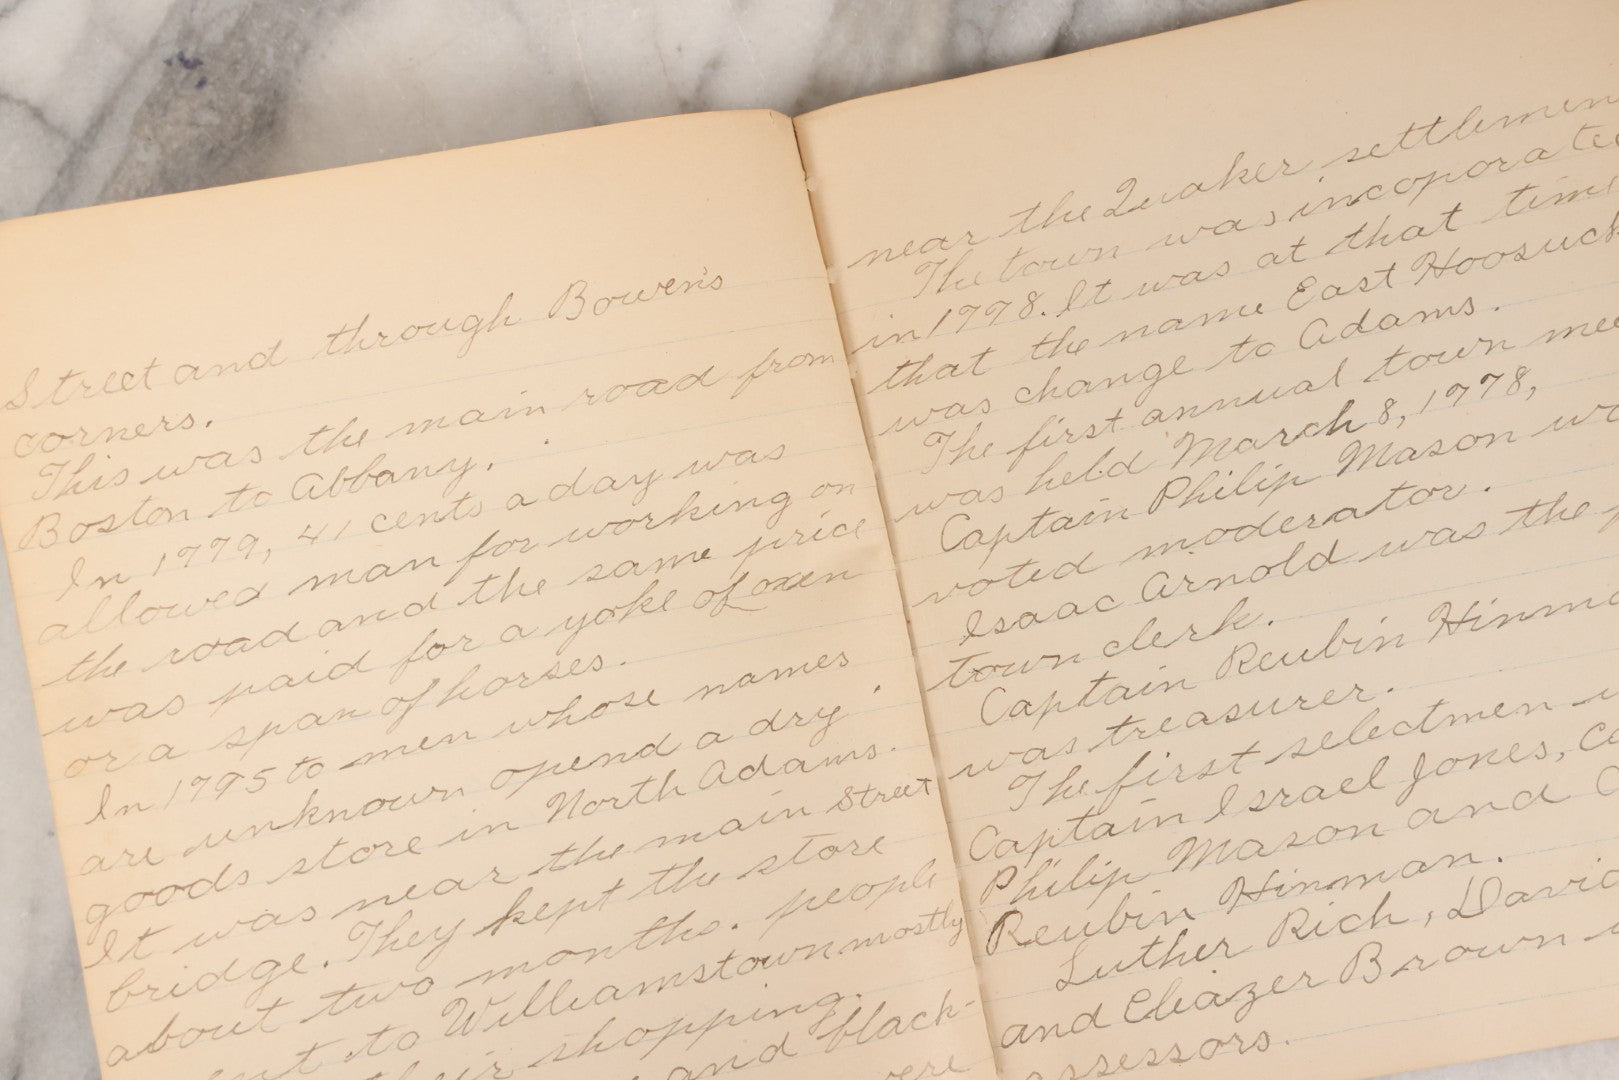 Street and through Bowen's
corners.
This was the main road from
Boston to Abbany.
In 1779, 41 cents a day was
allowed man for working on
the road and the same price
was paid for a yoke of oxen
or a span of horses.
In 1795 to men whose names
are unknown opend a dry
goods store in North Adams.
It was near the main Street
bridge. They kept the store
about two months. people
to Williamstown mostly
their shopping.
and black-
were
near the Quaker settlemen
The town was incoporated
in 1778. It was at that time
that the name East Hoosuck
was change to Adams.
The first annual town mee
was held March 8, 1778,
Captain Philip Mason wa
voted moderator.
Isaac Arnold was the
town clerk.
Captain Reubin Hinma
was treasurer.
The first selectmen w
Captain Israel Jones, Ca
Philip Mason and C
Reubin Hinman.
Luther Rich, David
and Eliazer Brown w
assessors.